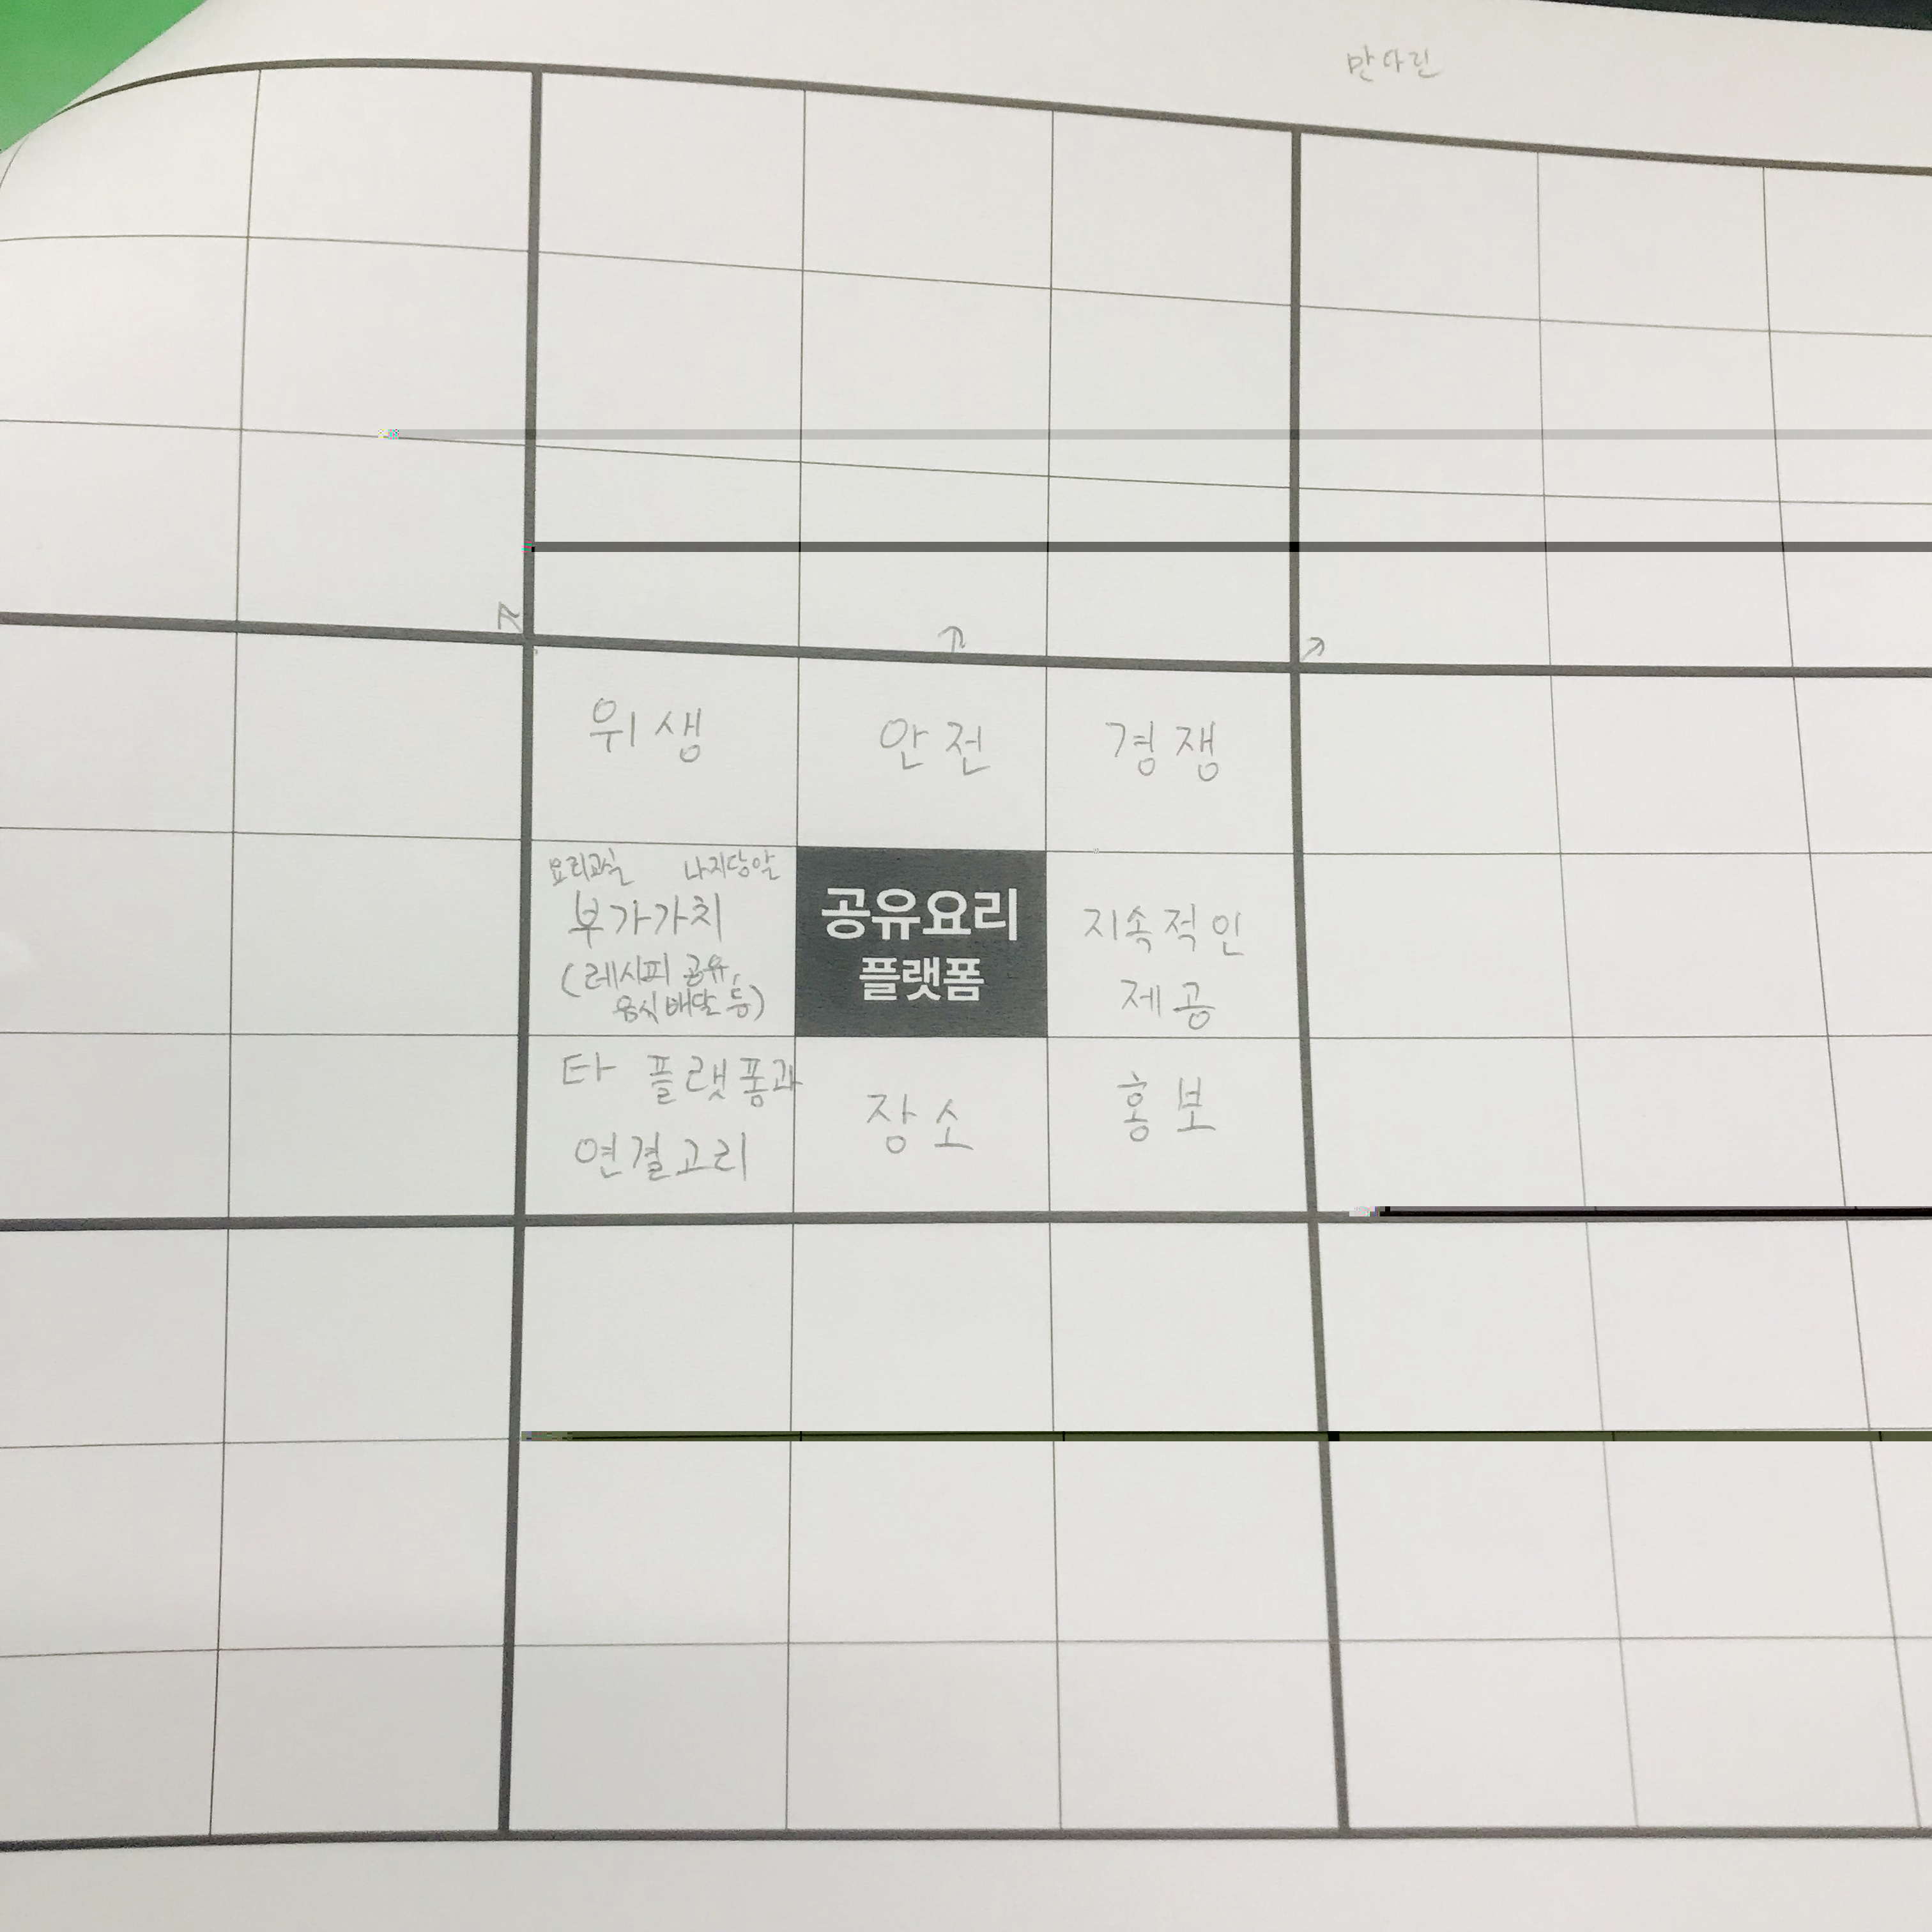 만다린
위생
안전
경쟁
요리교실
부가가치
(레시피 공유,
음식배달 등)
공유요리
플랫폼
지속적인
제공
타 플랫폼과
연결고리
장소
홍보